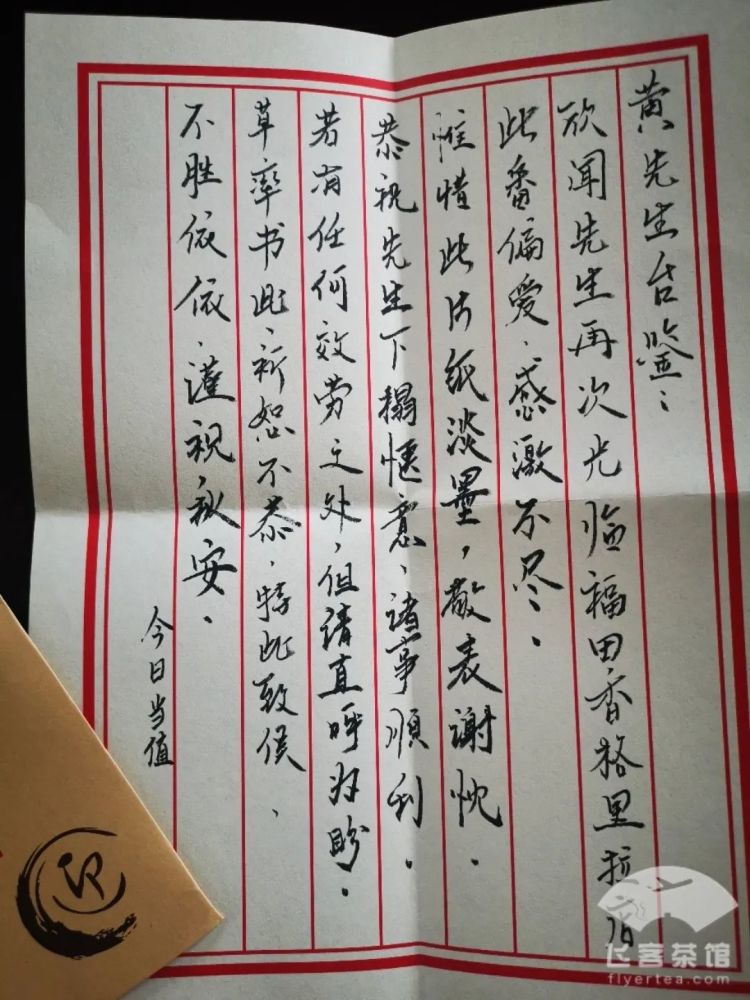 黄先生台鉴：
欣闻先生再次光临福田香格里拉，
此番偏爱、感激不尽、
惟惜此片纸淡墨，敬表谢忱．
恭祝先生下榻惬意、诸事顺利．
若有任何效劳之处，但请直呼为盼．
草率书此、祈恕不恭、特此致侯、
不胜依依、谨祝秋安．
今日当值
飞客茶馆
flyertea.com